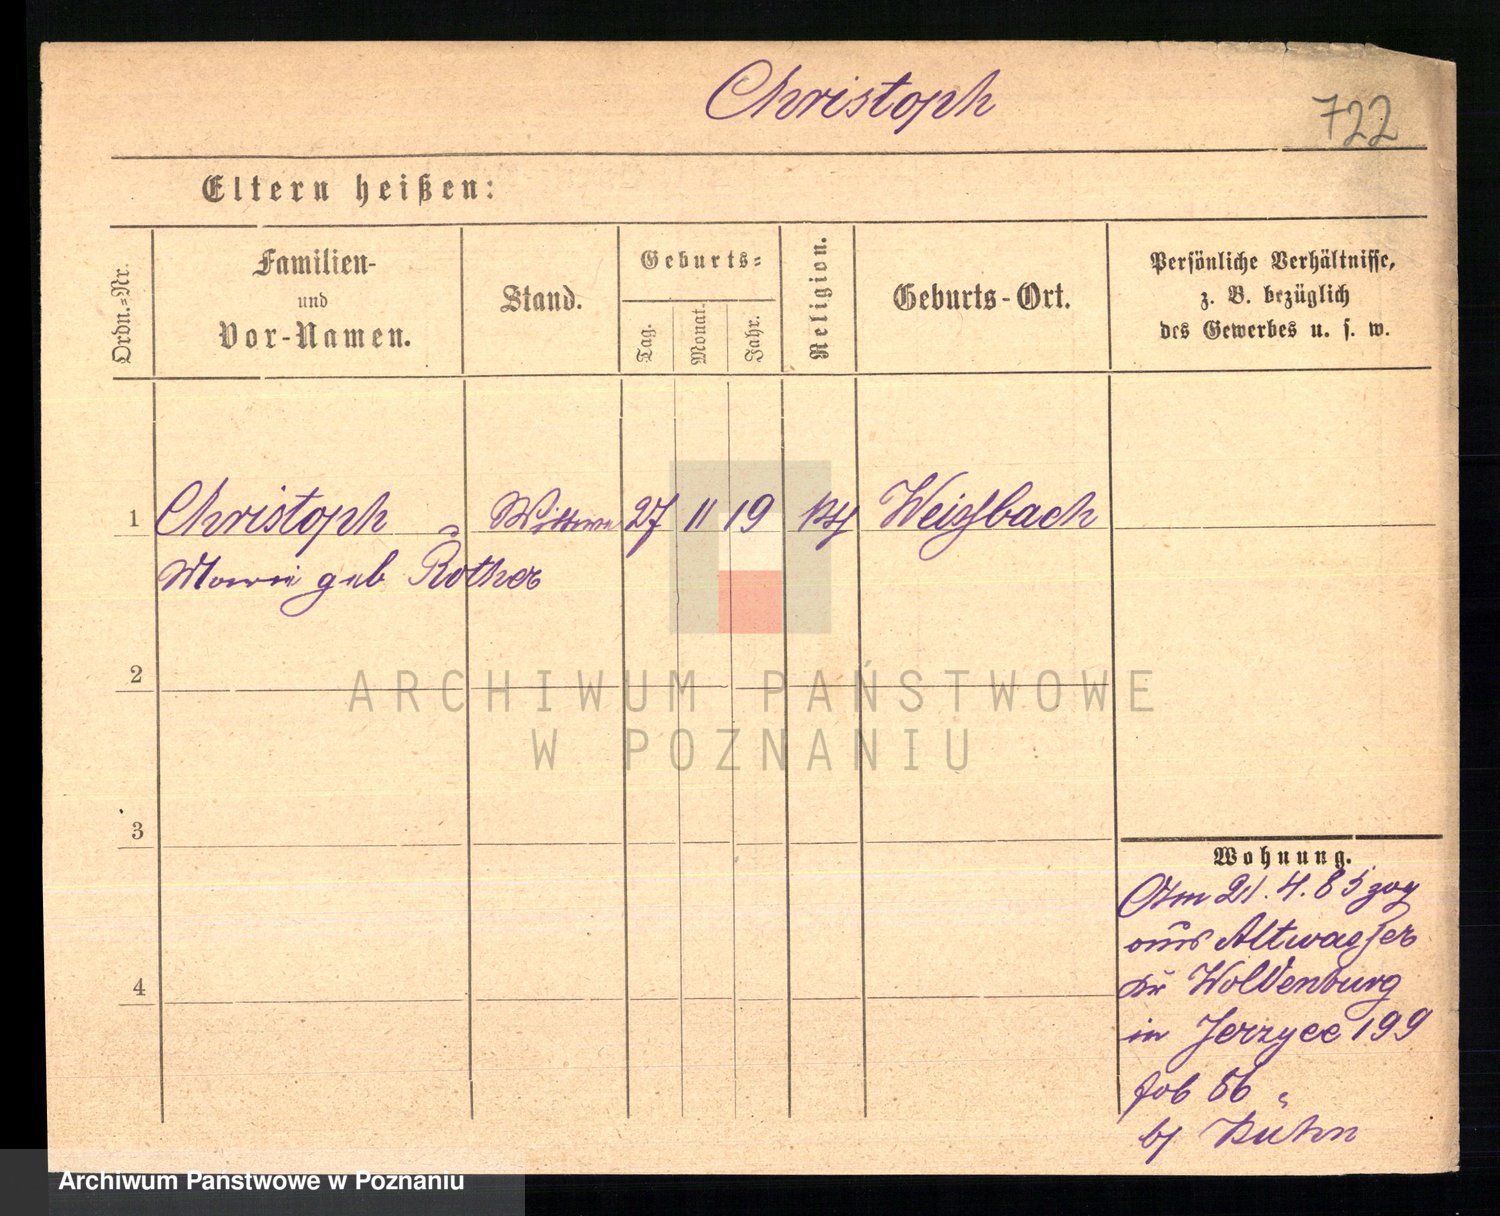 Christoph
722
Eltern heißen:
Ordn.-Nr.
Familien-
und
Vor-Namen.
Stand.
Geburts-
Tag.
Monat-
Jahr.
Religion.
Geburts-Ort.
Persönliche Verhältnisse,
z. B. bezüglich
des Gewerbes u. s. w.
1 Christoph Wittwe 27 11 19 Weißbach
Marie geb Rother
2
ARCHIWUM PAŃSTWOWE
W POZNANIU
3
4
Wohnung.
Am 21. 4. 85 zog
aus Altwasser
Kr Waldenburg
in Jerzyce 199
86 "
b/ Kuhn
Archiwum Państwowe w Poznaniu